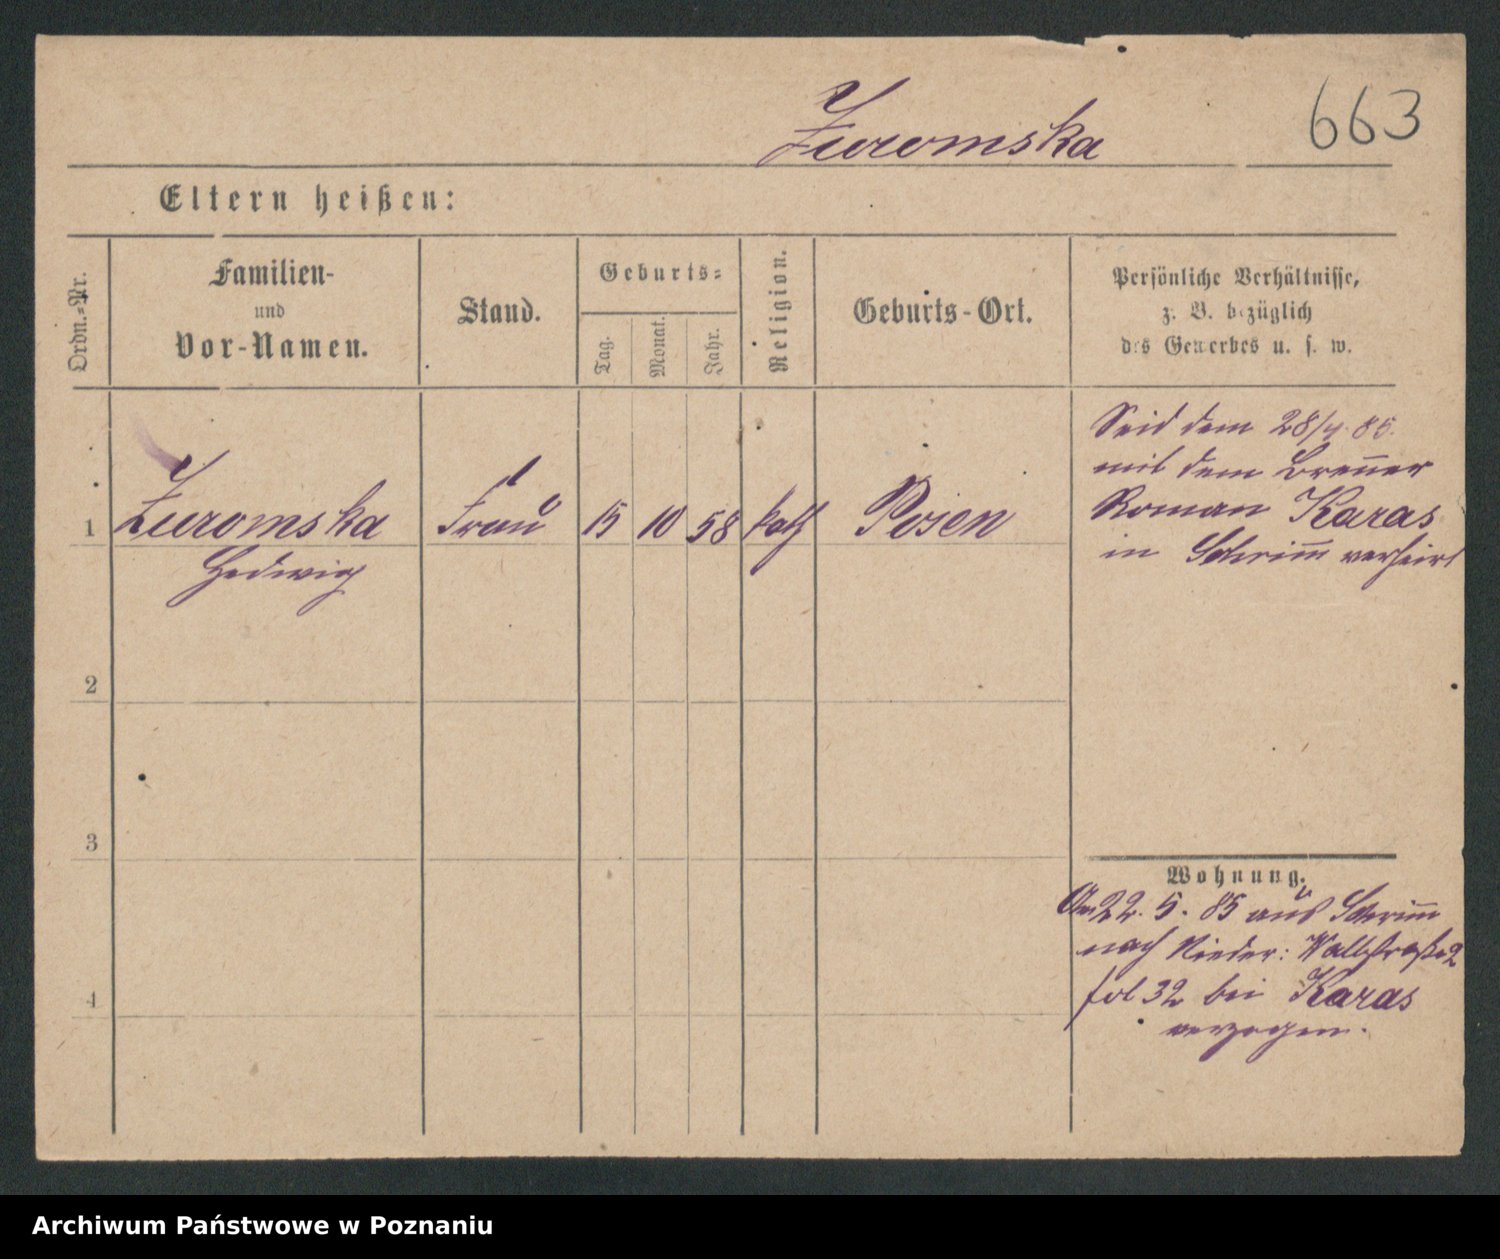 Zuromska
663
Eltern heißen:
Ordn.-Nr.
Familien-
und
Vor-Namen.
Stand.
Geburts-
Tag.
Monat.
Jahr.
Religion.
Geburts-Ort.
Persönliche Verhältnisse,
z. B. bezüglich
des Gewerbes u. s. w.
1
Zuromska
Hedwig
Frau
15
10
58
kath
Posen
Seid dem 28/4. 85.
mit dem Bren̅er
Roman Karas
in Schrim̅ verheirt
2
3
4
Wohnung.
Am 22. 5. 85 aus Schrim̅
nach Nieder: Wallstraße 2
fol 32 bei Karas
verzogen.
Archiwum Państwowe w Poznaniu